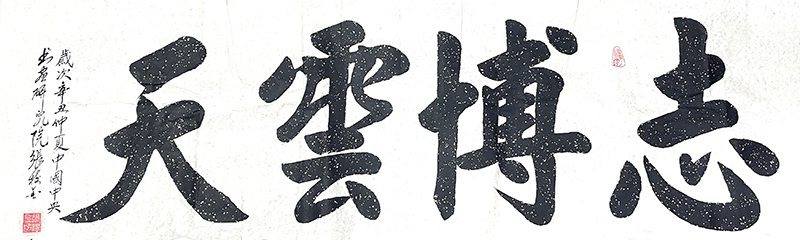 志博雲天
歲次辛丑仲夏中國中央
书画研究院張